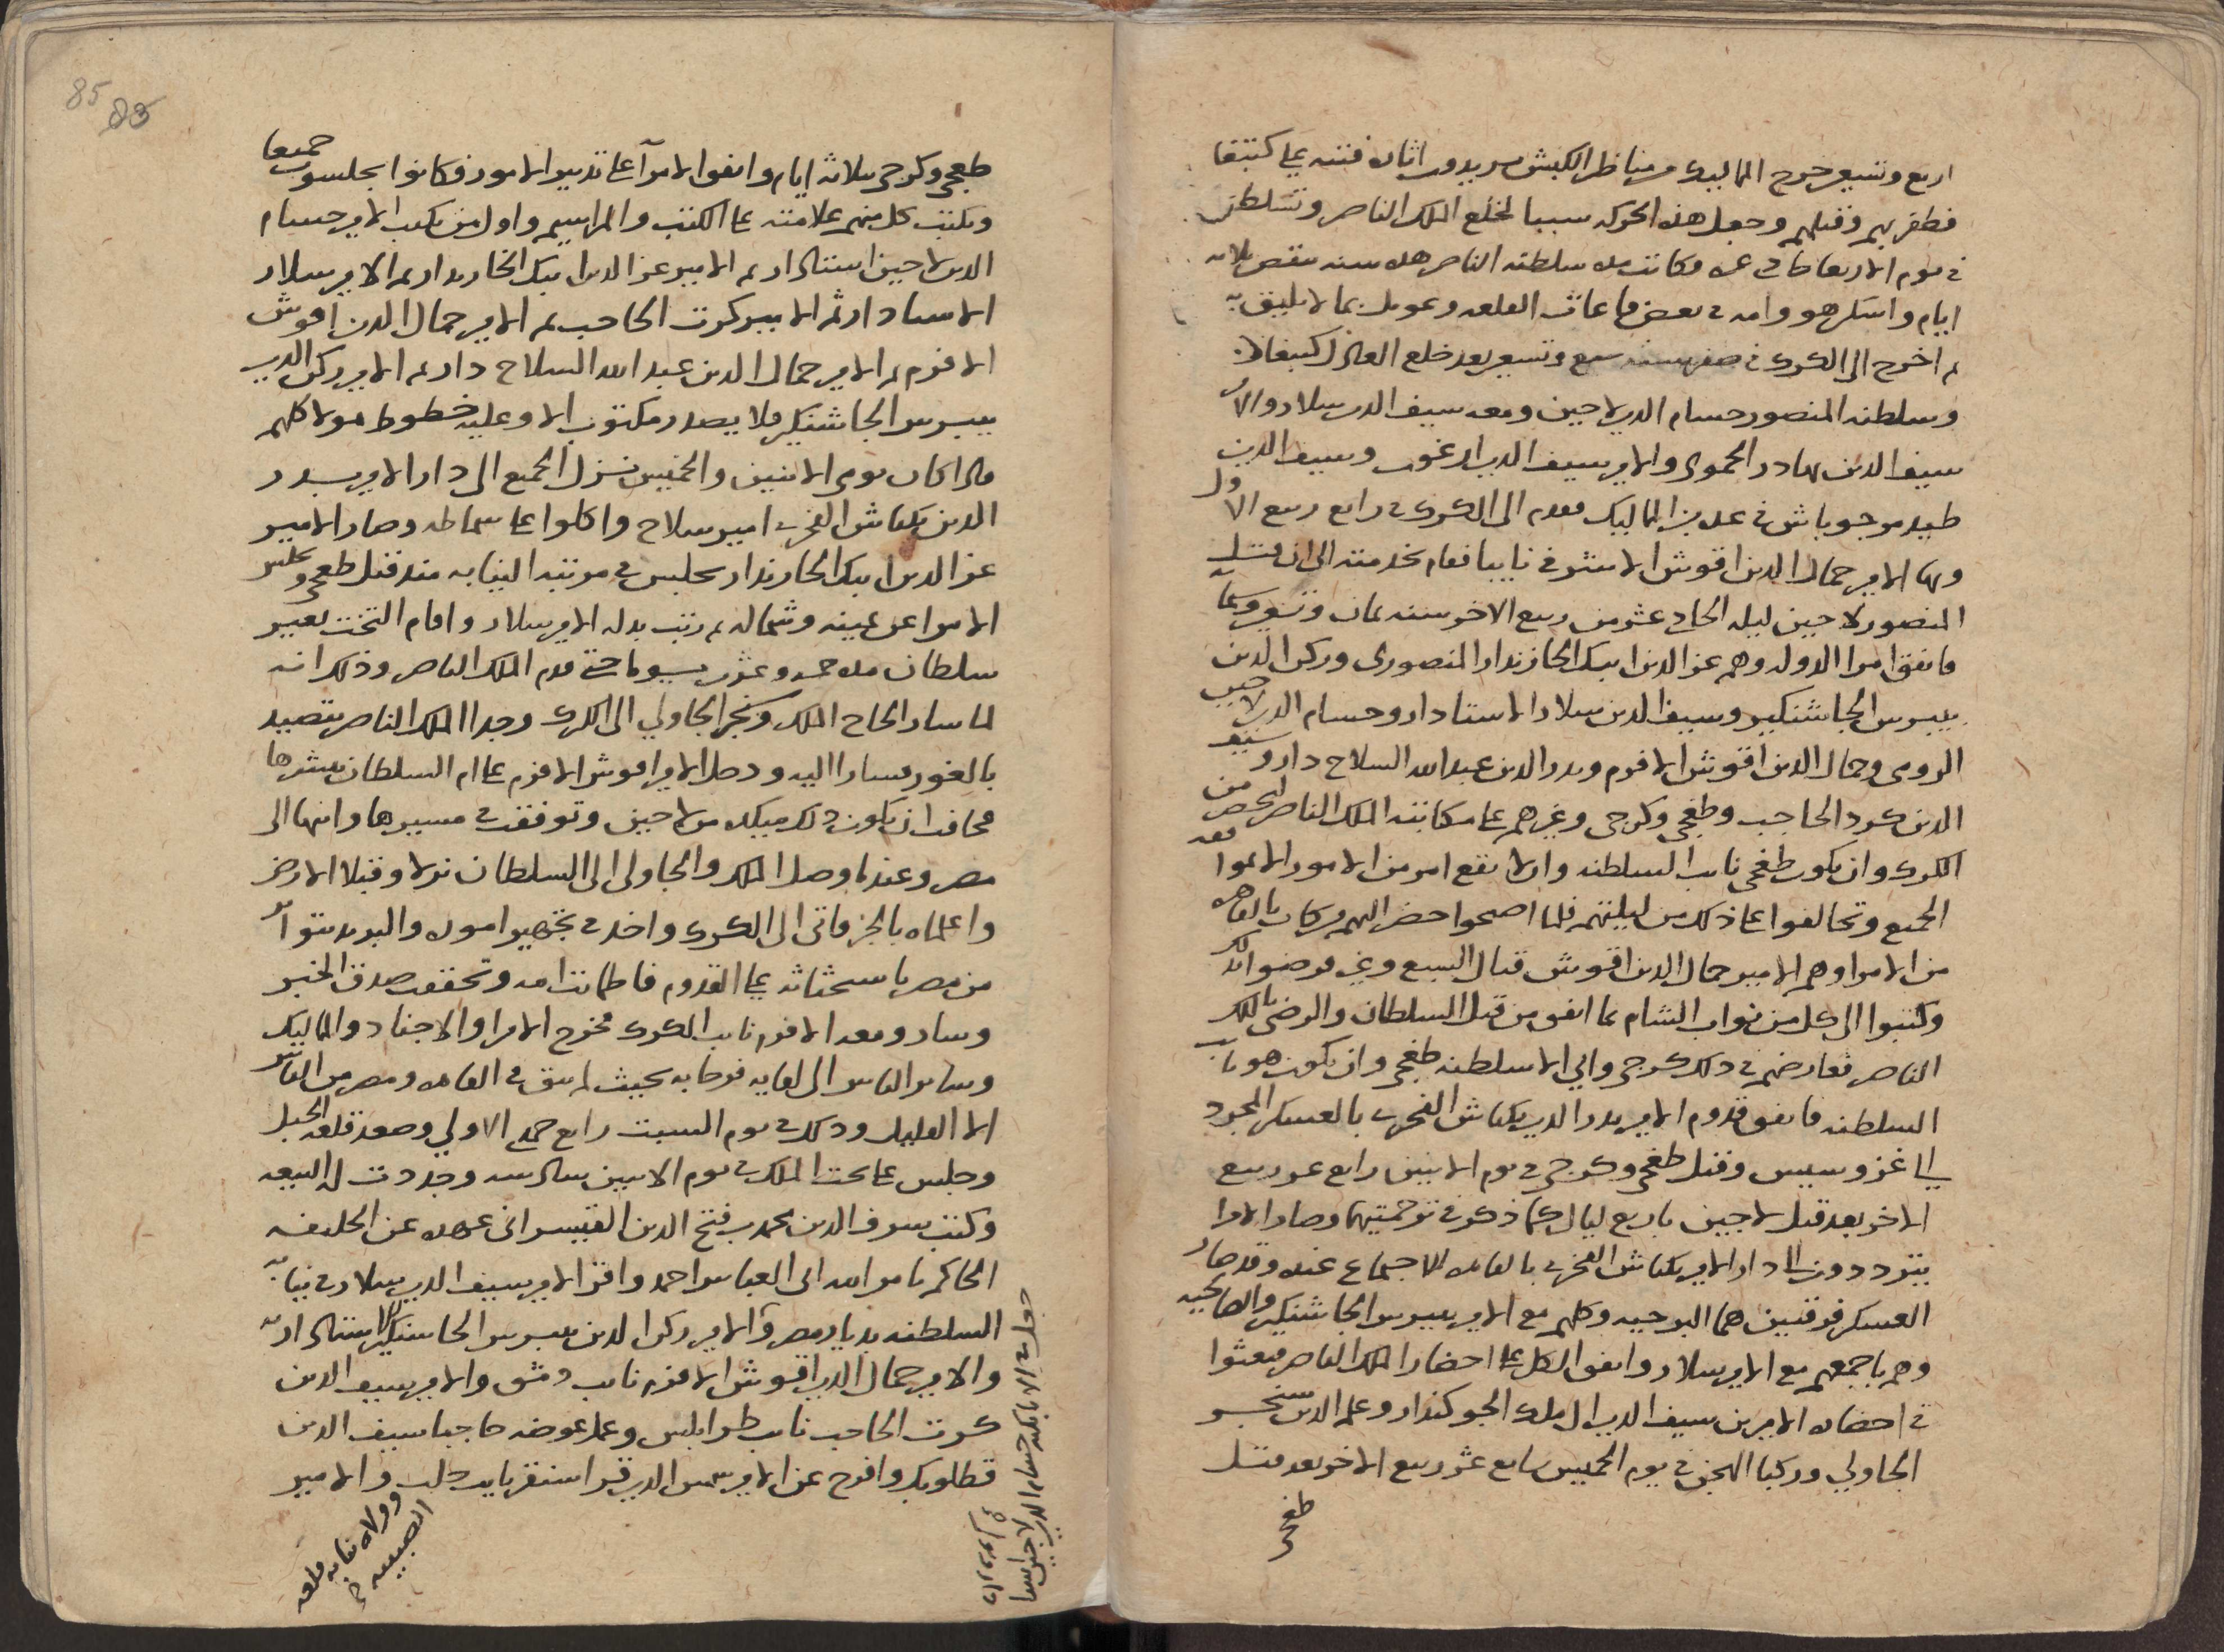 اربع وتسعين خرج المماليك من مناظر الكبش يريدون اثارة فتنه على كتبغا
فظفر بهم وقتلهم وجعل هذه الحركه سببا لخلع الملك الناصر وتسلطن
في يوم الاربعا حادى عشره وكانت مده سلطنه الناصر هذه سنه تنقص ثلاثه
ايام واسكن هو وامه في بعض قاعات القلعه وعومل بما لا يليق به
ثم اخرج الى الكرك في صفر سنه سبع وتسعين بعد خلع العادل كتبغا
وسلطنه المنصور حسام الدين لاجين ومعه سيف الدين سلار والامير
سيف الدين بهادر الحموى والامير سيف الدين ارغون وسيف الدين
طيدمر جوباش في عده من المماليك فقدم الى الكرك في رابع ربيع الاول
وبها الامير جمال الدين اقوش الاشرفي نايبا فقام بخدمته الى ان قتل
المنصور لاجين ليله الحادي عشر من ربيع الاخر سنه ثمان وتسعين وستمايه
فاتفق امرا الدوله وهم عز الدين ايبك الخازندار المنصورى وركن الدين
بيبرس الجاشنكير وسيف الدين سلار الاستادار وحسام الدين لاجين
الرومى وجمال الدين اقوش الافرم وبدر الدين عبد الله السلاح دار وسيف
الدين كرد الحاجب وطغجى وكرجى وغيرهم على مكاتبه الملك الناصر ليحضر من
الكرك وان يكون طغجى نايب السلطنه وان لا يقع امر من الامور الا بموافقه
الجميع وتحالفوا على ذلك من ليلتهم فلما اصبحوا حضر اليهم من كان بالقاهره
من الامرا وهم الامير جمال الدين اقوش قتال السبع وغيره فرضوا بذلك
وكتبوا الى كل من نواب الشام بما اتفق من قتل السلطان والرضى بالملك
الناصر فعارضهم في ذلك كرجى وابي الا سلطنه طغجى وان يكون هو نايب
السلطنه فاتفق قدوم الامير بدر الدين بكتاش الفخرى بالعسكر المجرد
الى غزو سيس وقتل طغجى وكرجى في يوم الاثنين رابع عشر ربيع
الاخر بعد قتل لاجين باربع ليال كما ذكر في ترجمتيهما وصار الامرا
يترددون الى دار الامير بكتاش الفخرى بالقاهره للاجتماع عنده وقد صار
العسكر فرقتين هما البرجيه وكلهم مع الامير بيبرس الجاشنكير والصالحيه
وهم باجمعهم مع الامير سلار واتفق الكل على احضار الملك الناصر فبعثوا
في احضاره الاميرين سيف الدين ال ملك الجوكندار وعلم الدين سنجر
الجاولي وركبا الهجن في يوم الخميس سابع عشر ربيع الاخر بعد قتل
طغجى
85
طغجى وكرجى بثلاثه ايام واتفق الامرا على تدبير الامور فكانوا يجلسون جميعا
ويكتب كل منهم علامته على الكتب والمراسيم واول من يكتب الامير حسام
الدين لاجين استادار ثم الامير عز الدين ايبك الخازندار ثم الامير سلار
الاستادار ثم الامير كرت الحاجب ثم الامير جمال الدين اقوش
الافرم ثم الامير جمال الدين عبد الله السلاح دار ثم الامير ركن الدين
بيبرس الجاشنكير فلا يصدر مكتوب الا وعليه خطوط هولا كلهم
فاذا كان يومى الاثنين والخميس نزل الجميع الى دار الامير بدر
الدين بكتاش الفخرى امير سلاح واكلوا على سماطه وصار الامير
عز الدين ايبك الخازندار يجلس في مرتبه النيابه منذ قتل طغجى ويجلس
الامرا عن يمينه وشماله ثم رتب بدله الامير سلار واقام التخت بغير
سلطان مده خمسه وعشرين يوما حتى قدم الملك الناصر وذلك انه
لما سار الحاج الملك وسنجر الجاولي الى الكرك وجدا الملك الناصر يتصيد
بالغور فسارا اليه ودخل الامير اقوش الافرم على ام السلطان يبشرها
فخافت ان يكون ذلك مكيده من لاجين وتوقفت في مسيرها وابنها الى
مصر وعندما وصل الملك والجاولى الى السلطان نزلا وقبلا الارض
واعلماه بالخبر فاتى الى الكرك واخذ في تجهيز اموره والبريد يتواتر
من مصر باستحثاثه على القدوم فاطمانت امه وتحققت صدق الخبر
وسار ومعه الافرم نايب الكرك فخرج الامرا والاجناد والمماليك
وساير الناس الى لقايه فرحا به بحيث لم يبق في القاهره ومصر من الناس
الا القليل وذلك في يوم السبت رابع جمادى الاولي وصعد قلعه الجبل
وجلس على تخت الملك في يوم الاثنين سادسه وجددت له البيعه
وكتب شرف الدين محمد بن فتح الدين القيسرانى عهده عن الخليفه
الحاكم بامر الله ابى العباس احمد واقر الامير سيف الدين سلار في نيابه
السلطنه بديار مصر والامير ركن الدين بيبرس الجاشنكير استاداريه
والامير جمال الدين اقوش الافرم نايب دمشق والامير سيف الدين
كرت الحاجب نايب طرابلس وعمل عوضه حاجبا سيف الدين
قطلوبك وافرج عن الامير شمس الدين قراسنقر نايب حلب والامير
وولاه نيابه قلعه
الصبيبه